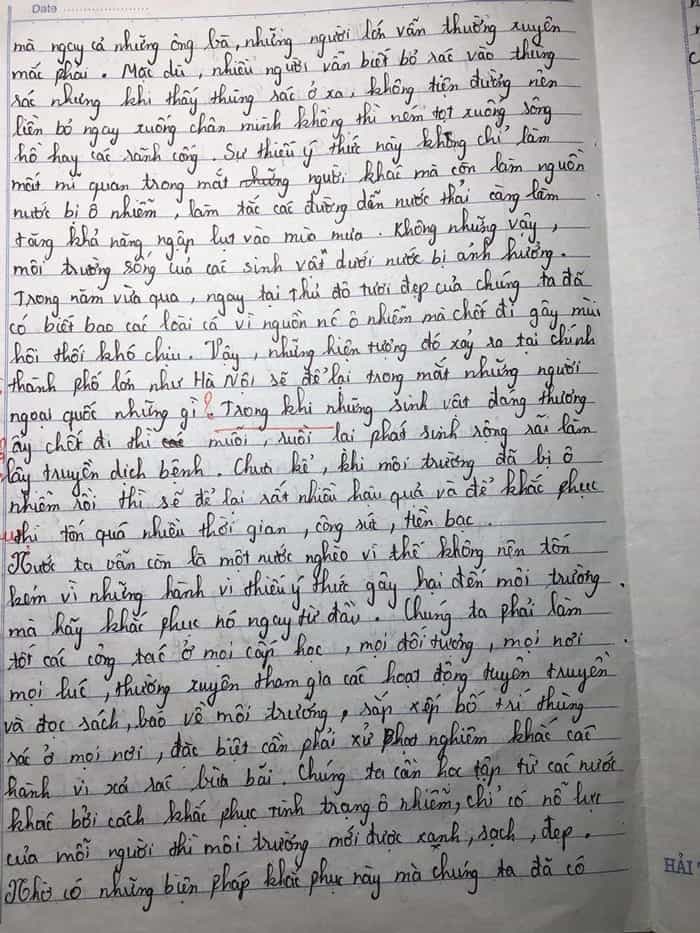 Date
mà ngay cả những ông bà, những người lớn vẫn thường xuyên
mắc phải. Mặc dù, nhiều người vẫn biết bỏ rác vào thùng
rác nhưng khi thấy thùng rác ở xa, không tiện đường nên
liền bỏ ngay xuống chân mình không thì ném tọt xuống sông
hồ hay các rãnh cống. Sự thiếu ý thức này không chỉ làm
mất mĩ quan trong mắt những người khác mà còn làm nguồn
nước bị ô nhiễm, làm tắc các đường dẫn nước thải càng làm
tăng khả năng ngập lụt vào mùa mưa. Không những vậy,
môi trường sống của các sinh vật dưới nước bị ảnh hưởng.
Trong năm vừa qua, ngay tại thủ đô tươi đẹp của chúng ta đã
có biết bao các loài cá vì nguồn nc ô nhiễm mà chết đi gây mùi
hôi thối khó chịu. Vậy, những hiện tượng đó xảy ra tại chính
thành phố lớn như Hà Nội sẽ để lại trong mắt những người
ngoại quốc những gì? Trong khi những sinh vật đáng thương
ấy chết đi thì các muỗi, ruồi lại phát sinh rộng rãi làm
lây truyền dịch bệnh. Chưa kể, khi môi trường đã bị ô
nhiễm rồi thì sẽ để lại rất nhiều hậu quả và để khắc phục
thì tốn quá nhiều thời gian, công sức, tiền bạc.
Nước ta vẫn còn là một nước nghèo vì thế không nên tốn
kém vì những hành vi thiếu ý thức gây hại đến môi trường
mà hãy khắc phục nó ngay từ đầu. Chúng ta phải làm
tốt các công tác ở mọi cấp học, mọi đối tượng, mọi nơi
mọi lúc, thường xuyên tham gia các hoạt động tuyên truyền
và đọc sách, báo về môi trường, sắp xếp bố trí thùng
rác ở mọi nơi, đặc biệt cần phải xử phạt nghiêm khắc các
hành vi xả rác bừa bãi. Chúng ta cần học tập từ các nước
khác bởi cách khắc phục tình trạng ô nhiễm, chỉ có nỗ lực
của mỗi người thì môi trường mới được xanh, sạch, đẹp.
Nhờ có những biện pháp khắc phục này mà chúng ta đã có
HẢI